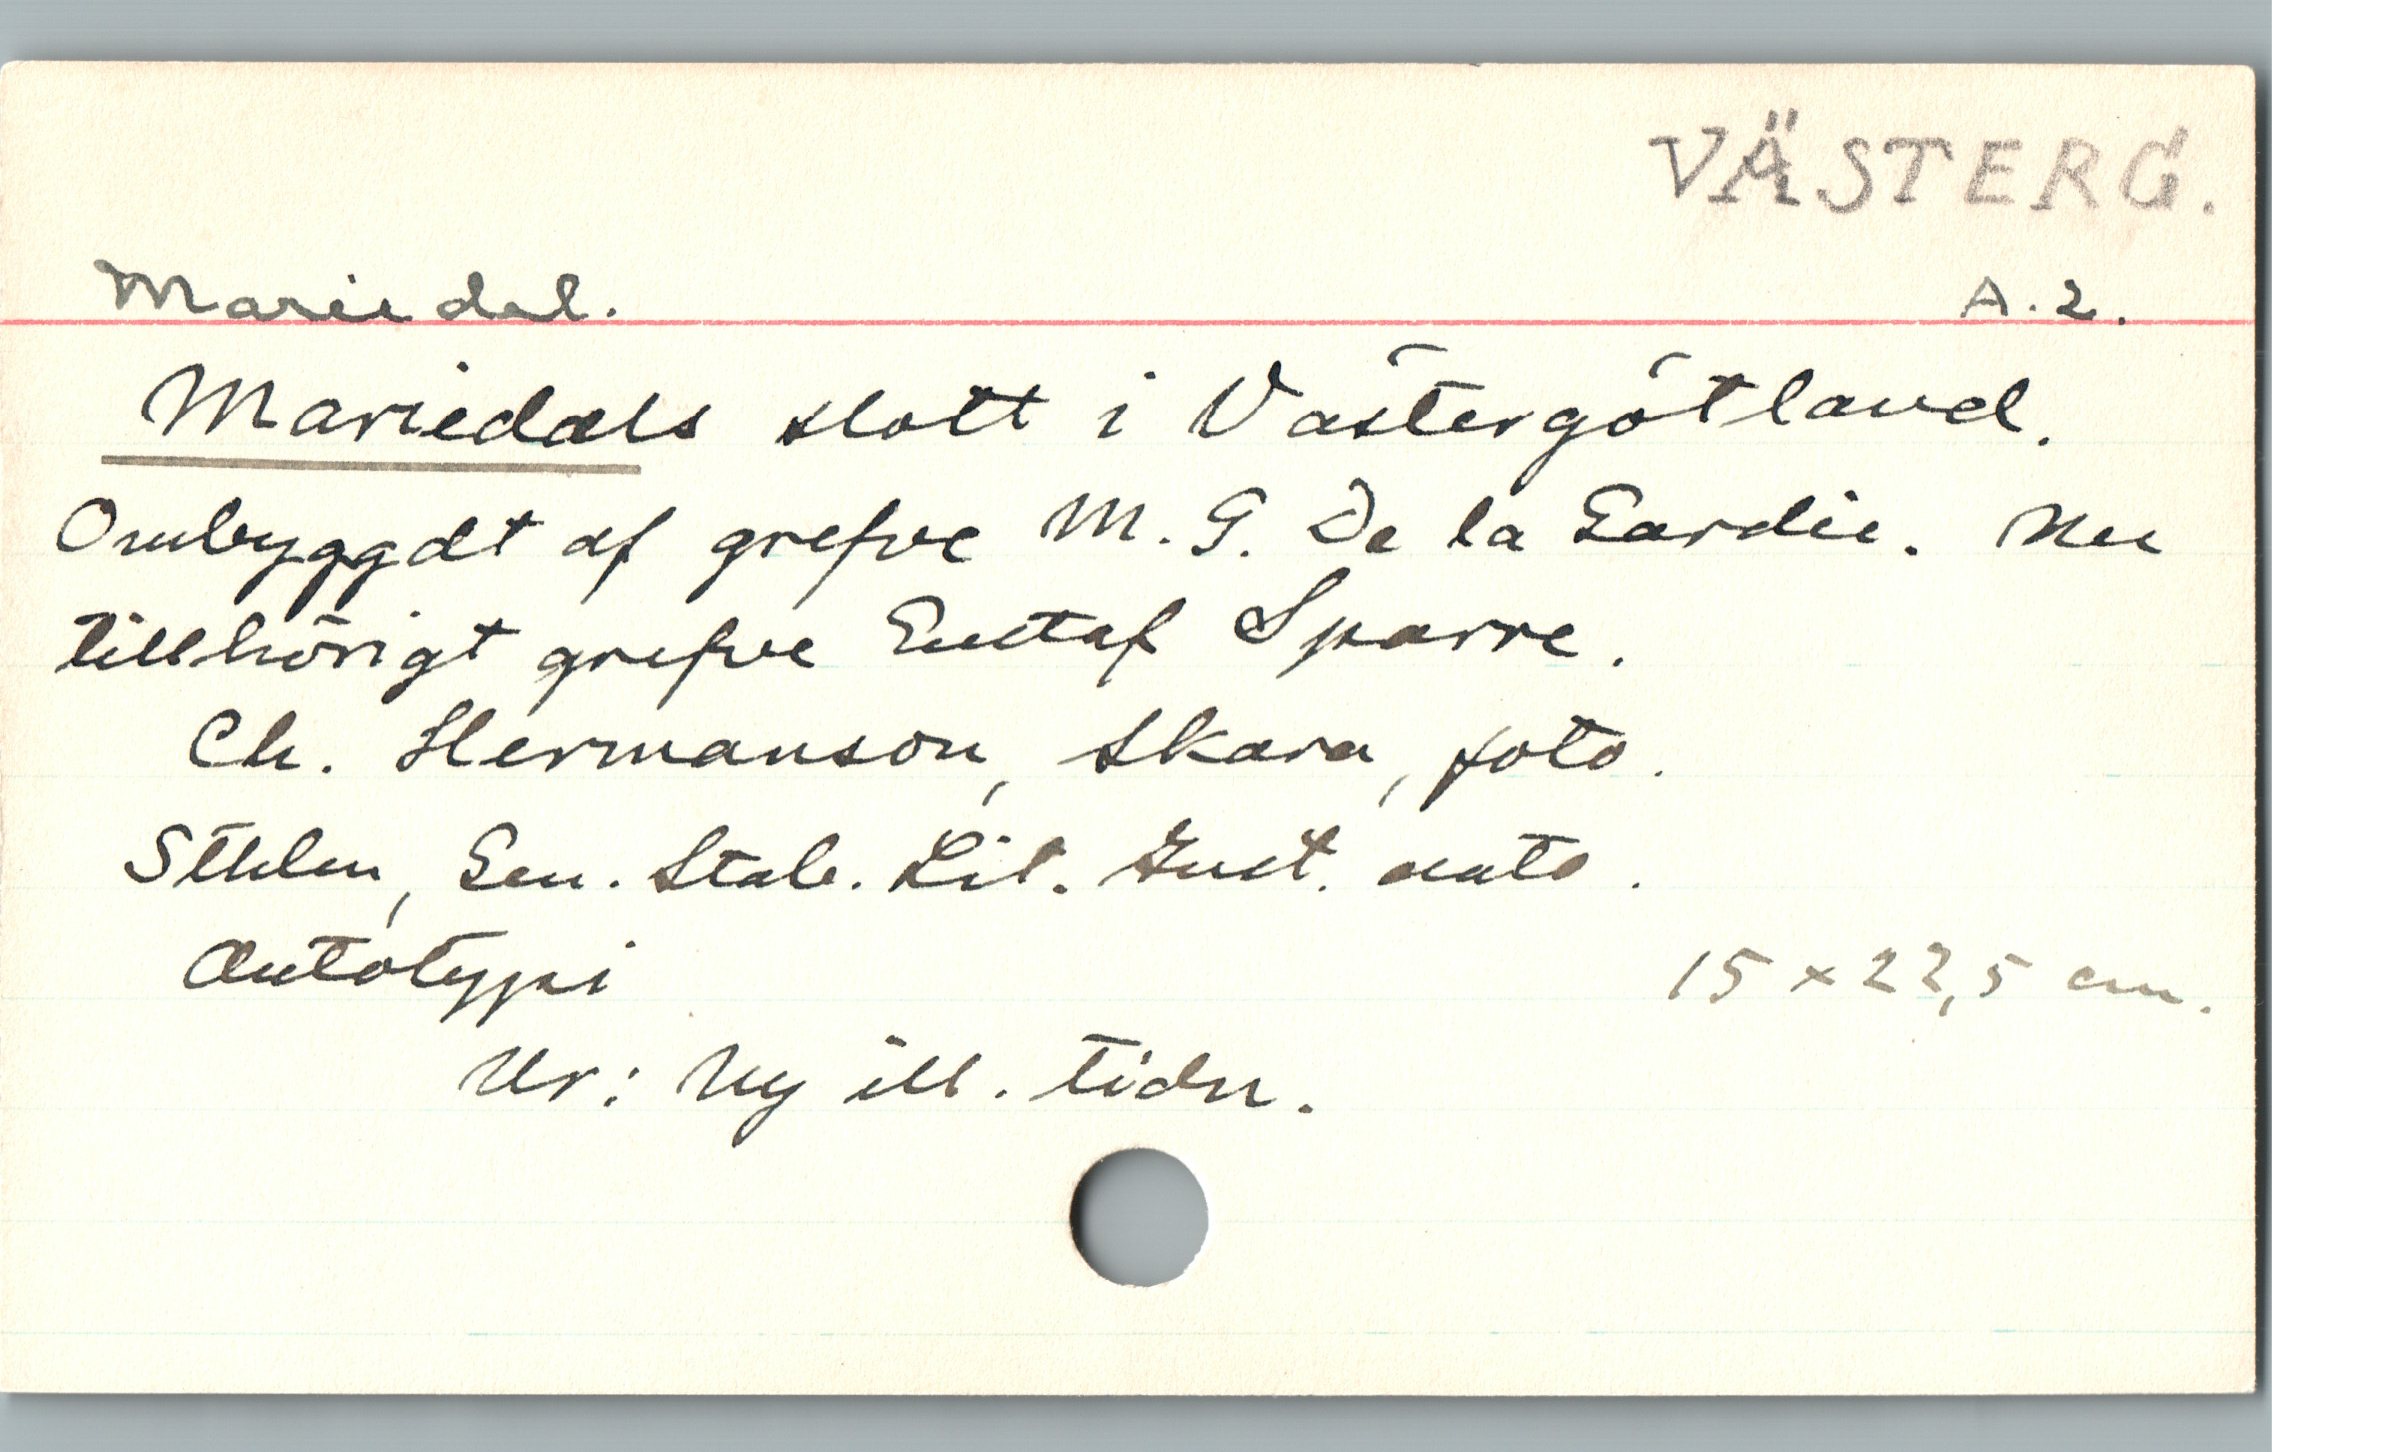 VÄSTERG.
Mariedal. A.2.
Mariedals slott i Västergötland.
Ombyggdt af grefve M. G. De la Gardie. Nu
tillhörigt grefve Gustaf Sparre.
Ch. Hermanson, Skara, foto.
Sthlm, Gen. Stab. Lit. Inst. auto.
Autotypi 15 x 22,5 cm.
Ur: Ny ill. tidn.